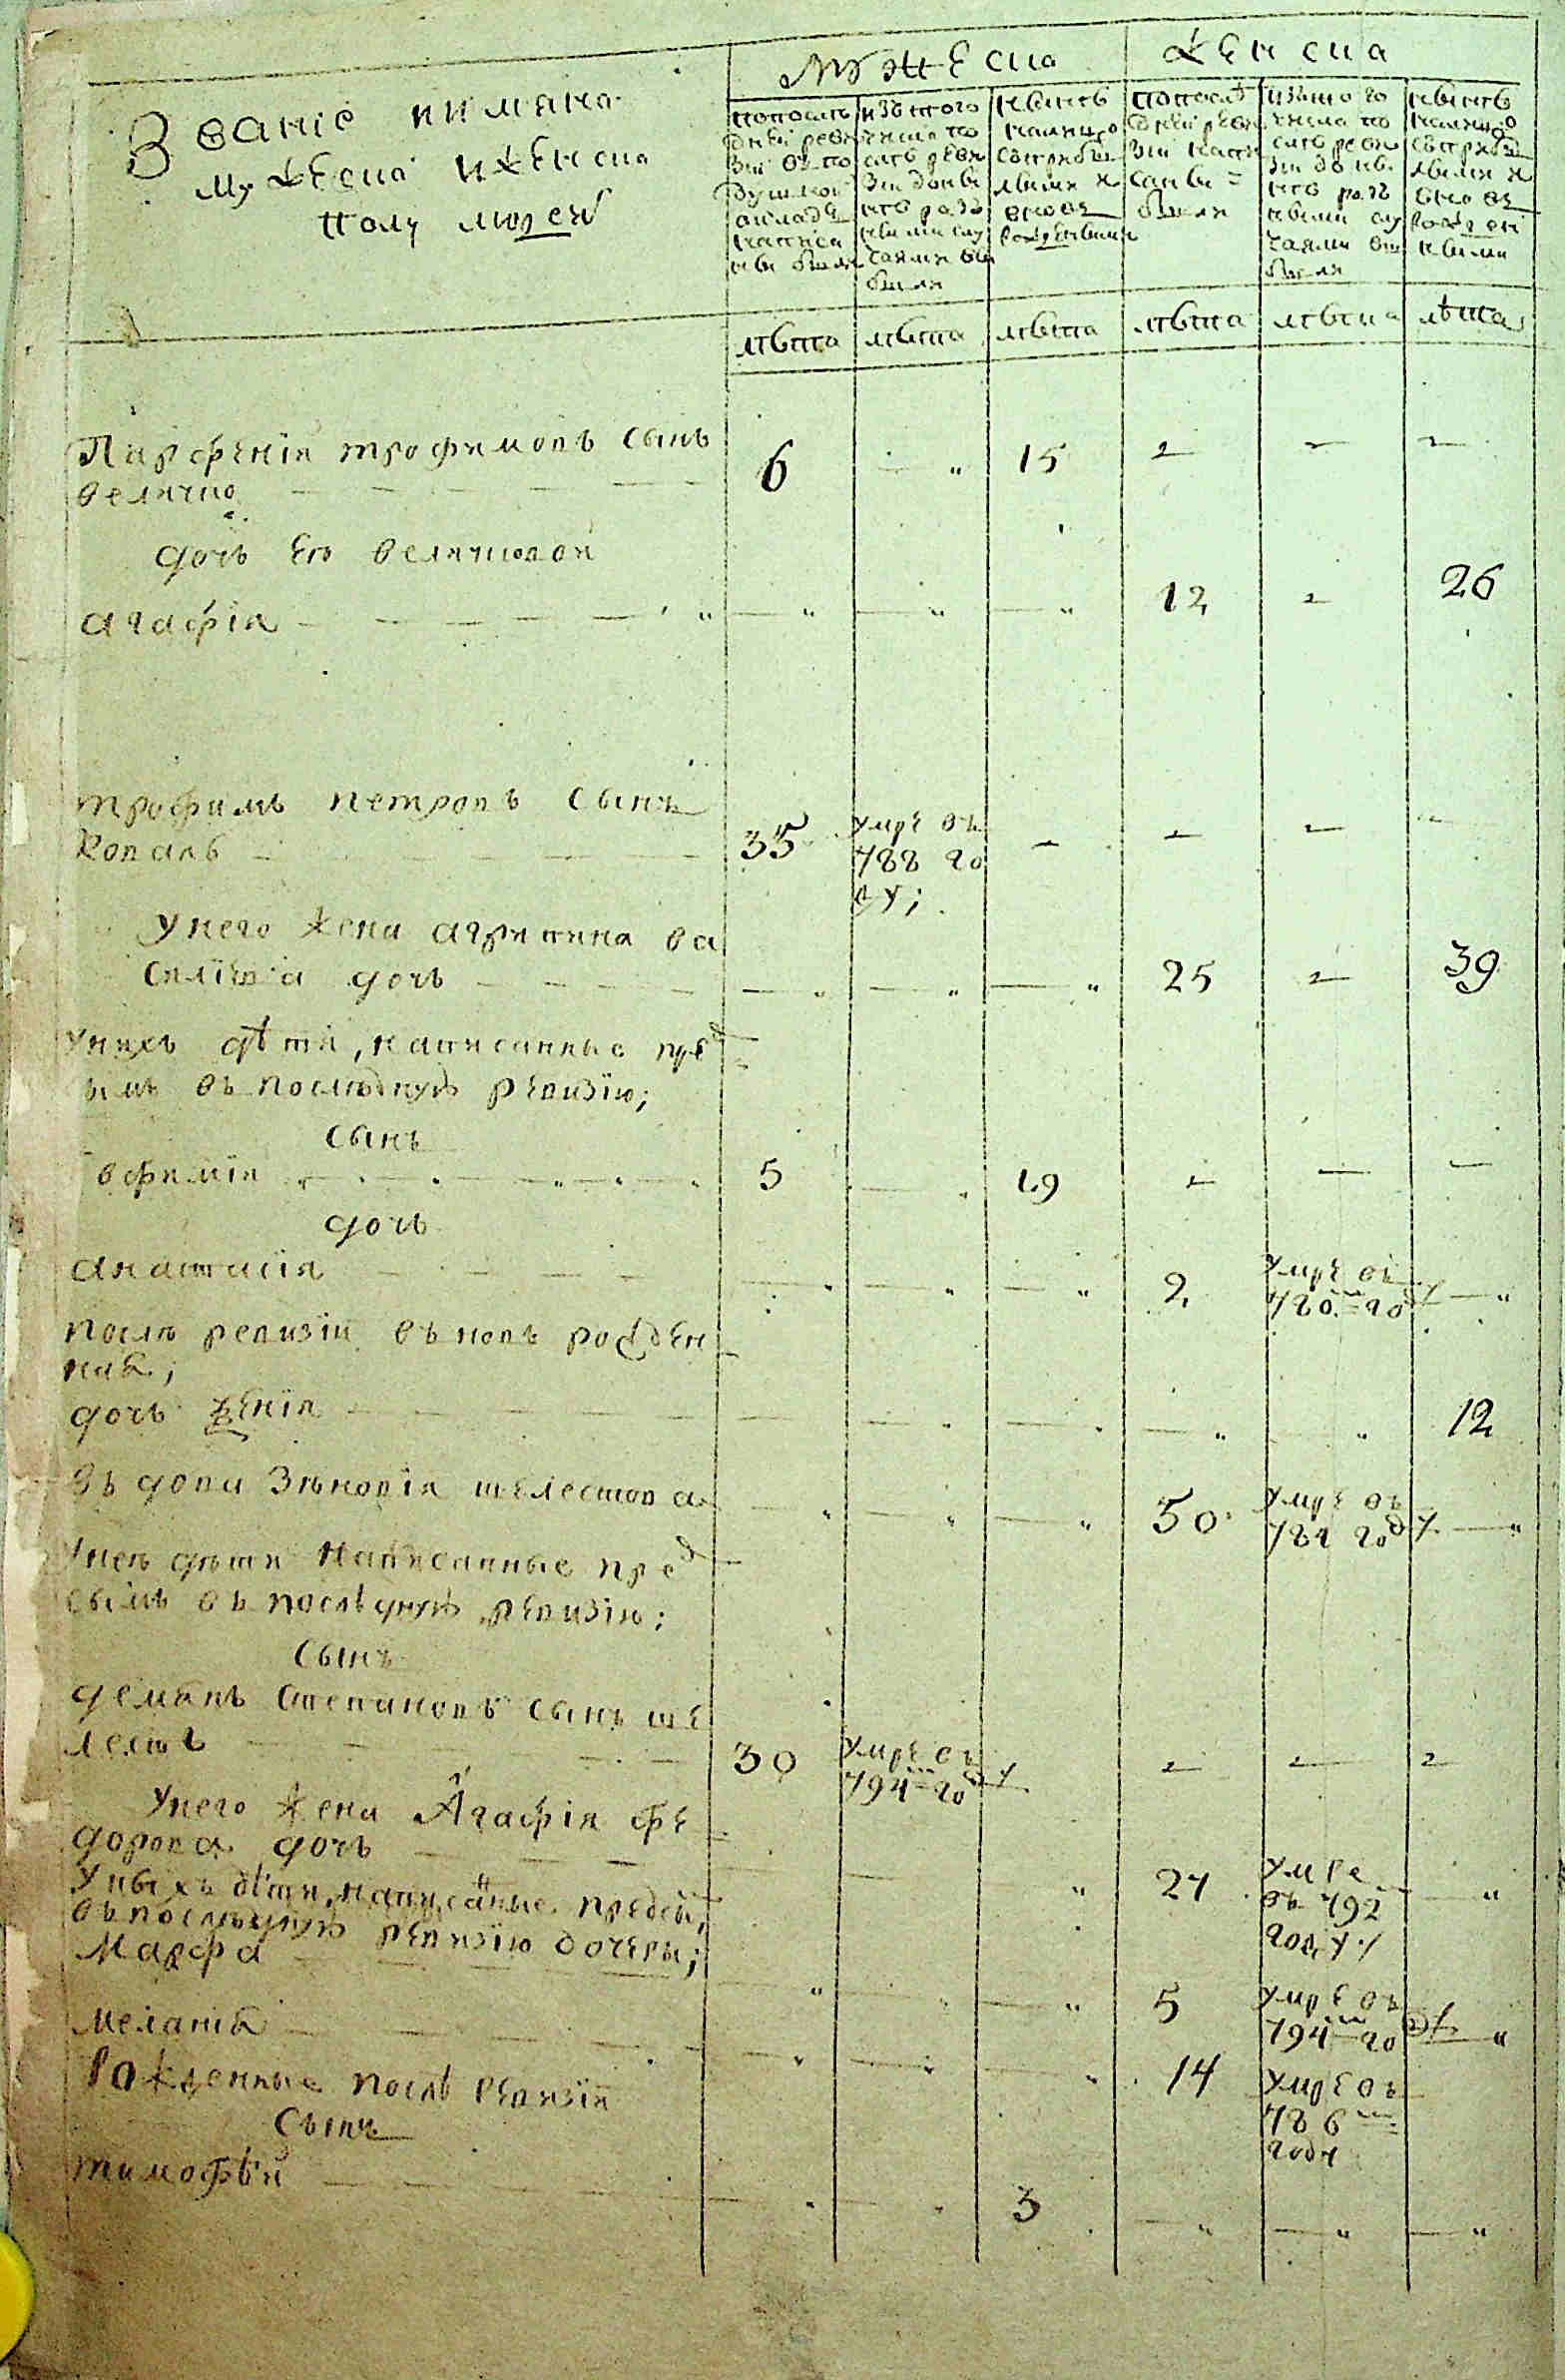 Званіе и имяна
мужеска и женска
полу людей
Мужеска
Женска
по послѣ
дней реви
зіи въ по
душной
окладъ
написа
ны были
изъ того
числа по
слѣ реви
зіи до нынѣ
разъ
ными слу
чаями вы
были
нынѣ
налицо
съ прибы
лыми и
вновь
рожденными
по послѣ
дней реви
зіи напи
саны
были
изъ того
числа по
слѣ реви
зіи до ны
нѣ разъ
ными слу
чаями вы
были
нынѣ
налицо
съ прибы
лыми и
вновь
рожден
ными
лѣта лѣта лѣта лѣта лѣта лѣта
Парфеній трофимовъ сынъ
величко 6 15
дочь его величковой
агафія 12 26
трофимъ петровъ сынъ
коваль 35 умре въ
788 го
ду;
у него жена агрипина ва
силіева дочь 25 39
у нихъ дѣти, написанные пред
симъ въ последную ревизію;
сынъ
ефимій 5 19
дочь
анастасія 2 умре въ
780 году
после ревизіи въновь рожден
ная;
дочь 12
вдова зѣновія шелестова 50 умре въ
784 году
у неѣ дѣти написанные пред
симъ въ послѣдную ревизію;
сынъ
демянъ степановъ сынъ ше
лестъ 30 умре въ
794 году
у него жена Агафія фе
дорова дочь 27 умре
въ 792
году
у ныхъ дѣти, написаные предсимъ
въ последную ревизію дочери;
Марфа 5 умре въ
794 году
меланія 14 умре въ
786
году
Рожденные послѣ ревизіи
сынъ
тимофѣй 3